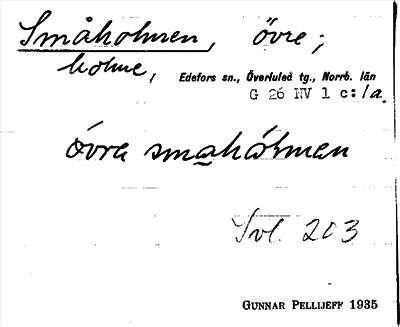 Småholmen, övre;
holme,
Edefors sn., Överluleå tg., Norrb. län
G 26 NV 1 c:/a.
övra smahólmen
Ivl. 203
GUNNAR PELLIJEFF 1935